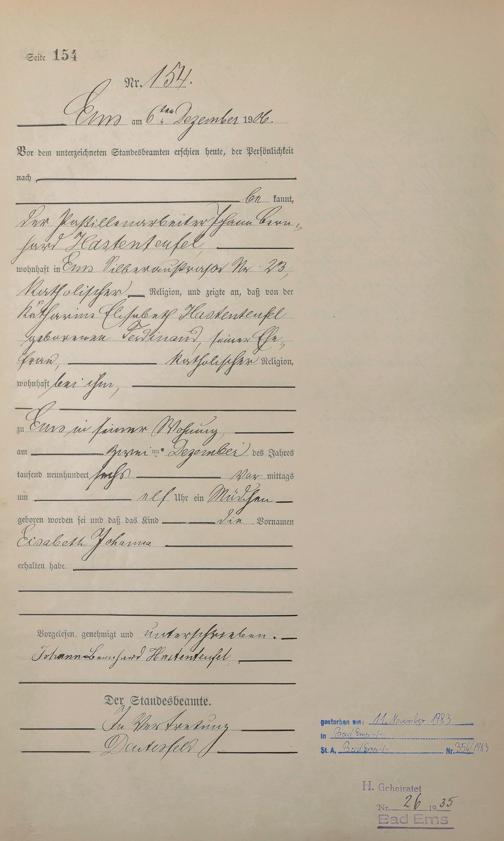 Seite 154
Nr. 154.
Ems am 6ten Dezember 1906.
Vor dem unterzeichneten Standesbeamten erschien heute, der Persönlichkeit
nach
be kannt,
der Pastillenarbeiter Johann Bern-
hard Hastenteufel,
wohnhaft in Ems Silberaustraße Nr. 23,
katholischer Religion, und zeigte an, daß von der
Katharina Elisabeth Hastenteufel
geborenen Ferdinand, seiner Ehe-
frau, katholischer Religion,
wohnhaft bei ihm,
zu Ems in seiner Wohnung,
am zweiten Dezember des Jahres
tausend neunhundert sechs Vor mittags
um elf Uhr ein Mädchen
geboren worden sei und daß das Kind die Vornamen
Elisabeth Johanna
erhalten habe.
Vorgelesen, genehmigt und unterschrieben.
Johann Bernhard Hastenteufel
Der Standesbeamte.
In Vertretung
gestorben am: 11. November 1983
in Bad Ems
St. A. Bad Ems Nr. 356/1983
H. Geheiratet
Nr. 26 1935
Bad Ems